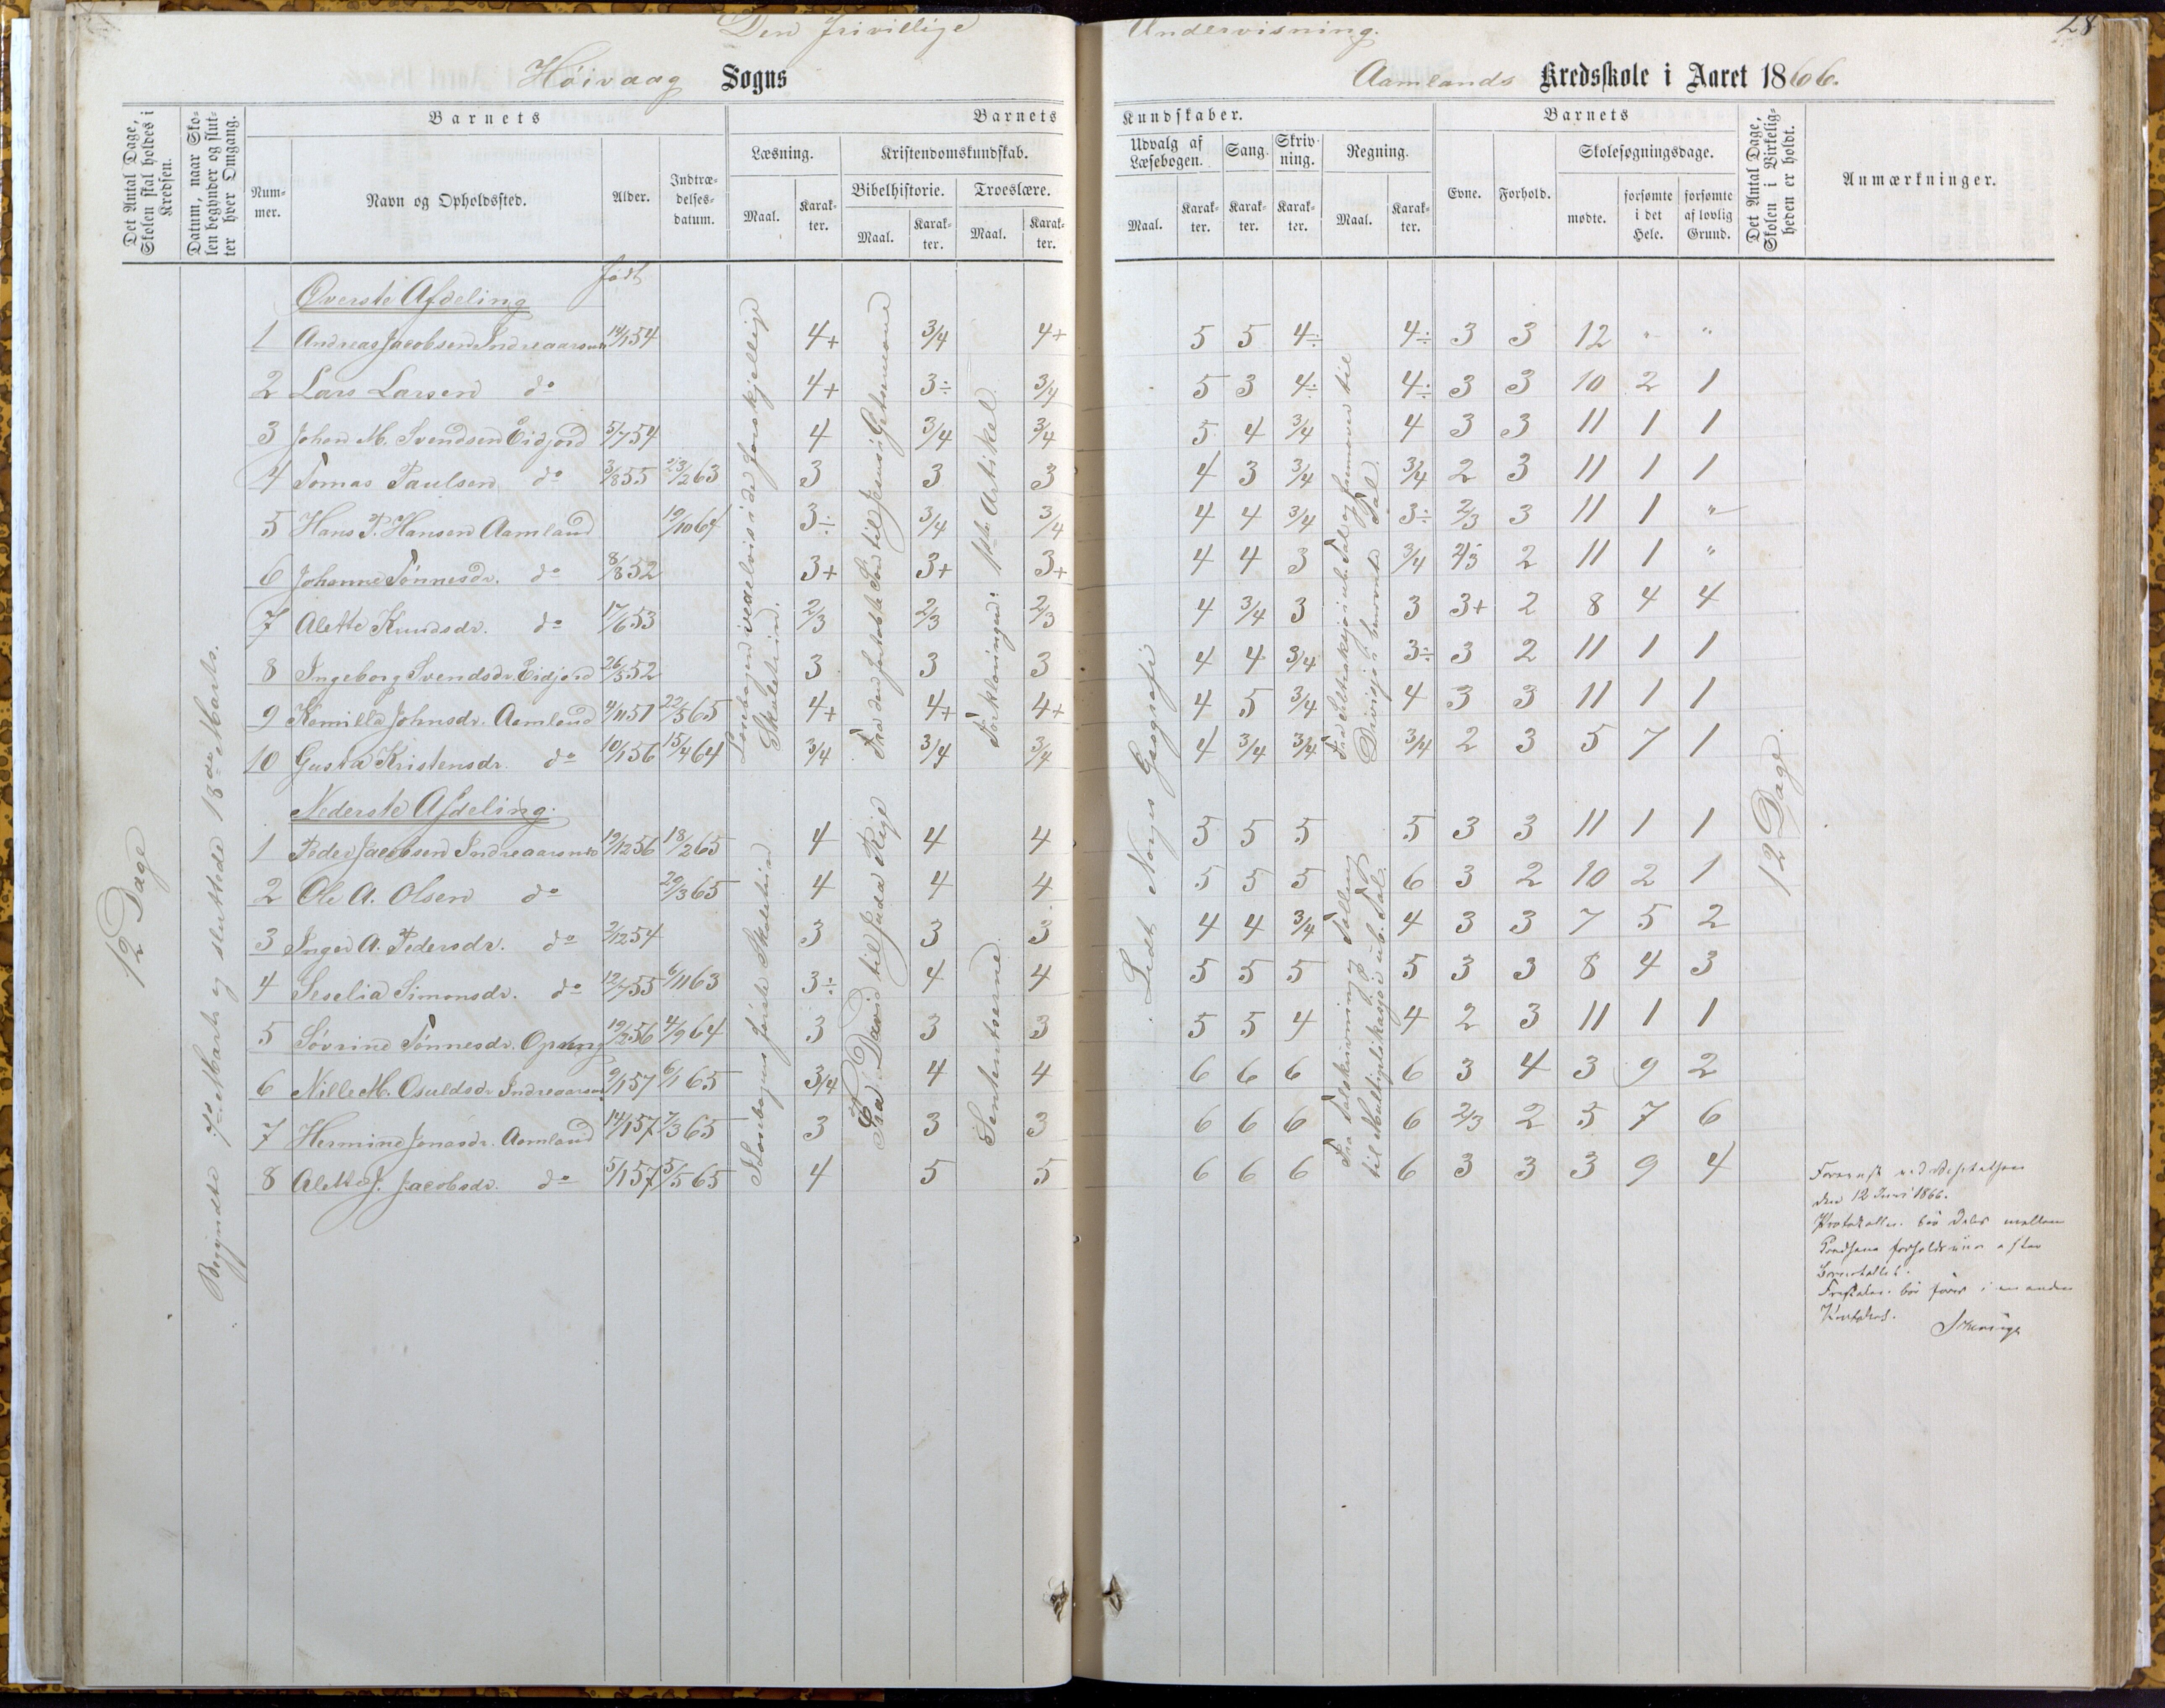 Den frivillige Undervisning.
28
Höivaag Sogns
Aamlands Kredsskole i Aaret 1866.
Det Antal Dage, Skolen skal holdes i Kredsen.
Datum, naar Skolen begynder og slutter hver Omgang.
Barnets
Nummer.
Navn og Opholdssted.
Alder.
Indtrædelsesdatum.
Barnets Kundskaber.
Læsning.
Maal.
Karakter.
Kristendomskundskab.
Bibelhistorie.
Maal.
Karakter.
Troeslære.
Maal.
Karakter.
Udvalg af Læsebogen.
Maal.
Karakter.
Sang.
Karakter.
Skrivning.
Karakter.
Regning.
Maal.
Karakter.
Barnets
Evne.
Forhold.
Skolesøgningsdage.
mødte.
forsømte i det Hele.
forsømte af lovlig Grund.
Det Antal Dage, Skolen i Virkeligheden er holdt.
Anmærkninger.
12 Dage
Begyndte 7de Marts og sluttede 18de Marts.
født
Øverste Afdeling
1 Andreas Jacobsen Indreaarsnes 14/1 54 4+ 3/4 4+ 5 5 4÷ 4÷ 3 3 12 " "
2 Lars Larsen do 4+ 3÷ 3/4 5 3 4÷ 4÷ 3 3 10 2 1
3 Johan M. Svendsen Eidjord 5/7 54 4 3/4 3/4 5 4 3/4 4 3 3 11 1 1
4 Tomas Paulsen do 3/8 55 23/2 63 3 3 3 4 3 3/4 3/4 2 3 11 1 1
5 Hans P. Hansen Aamland 19/10 64 3÷ 3/4 3/4 4 4 3/4 3÷ 2/3 3 11 1 "
6 Johanne Tönnesdr. do 8/8 52 3+ 3+ 3+ 4 4 3 3/4 2/3 2 11 1 "
7 Alette Knudsdr. do 17/6 53 2/3 2/3 2/3 4 3/4 3 3 3+ 2 8 4 4
8 Ingeborg Svendsdr. Eidjord 26/5 52 3 3 3 4 4 3/4 3÷ 3 2 11 1 1
9 Kamilla Johnsdr. Aamland 4/11 51 22/5 65 4+ 4+ 4+ 4 5 3/4 4 3 3 11 1 1
10 Gusta Kristensdr. do 10/1 56 15/4 64 3/4 3/4 3/4 4 3/4 3/4 3/4 2 3 5 7 1
Læsebogen i de forskjellige Skoletrin.
Fra den fortabte Søn til Jesus i Getsemane
Forklaringen: 1ste Artikel.
Lidt Norges Geografi
Tal og
til
Division
Tal.
Nederste Afdeling.
1 Peder Jacobsen Indreaarsnes 19/12 56 18/2 65 4 4 4 5 5 5 5 3 3 11 1 1
2 Ole A. Olsen do 29/3 65 4 4 4 5 5 5 6 3 2 10 2 1
3 Inger A. Pedersdr. do 2/12 54 3 3 3 4 4 3/4 4 3 3 7 5 2
4 Seselia Simonsdr. do 12/7 55 6/11 63 3÷ 4 4 5 5 5 5 3 3 8 4 3
5 Sövrine Tönnesdr. 19/2 56 4/9 64 3 3 3 5 5 4 4 2 3 11 1 1
6 Nille M. Osuldsdr. Indreaarsnes 9/1 57 6/1 65 3/4 4 4 6 6 6 6 3 4 3 9 2
7 Hermine Jonasdr. Aamland 14/1 57 7/3 65 3 3 3 6 6 6 6 2/3 2 5 7 6
8 Alette J. Jacobsdr. do 5/1 57 5/5 65 4 5 5 6 6 6 6 3 3 3 9 4
I Læsebogens første Skoletrin
Fra David til Juda Rige
Sententserne.
Fra Talskrivning og Tælling til Multiplikasjon i ub. Tal.
12 Dage.
Foreviist ved Visitatsen
den 12 Juni 1866.
Protokollen bör deles mellem
Kredsene forholdsviis efter
Børnetallet.
Friskolen bör föres i en anden
Protokol.